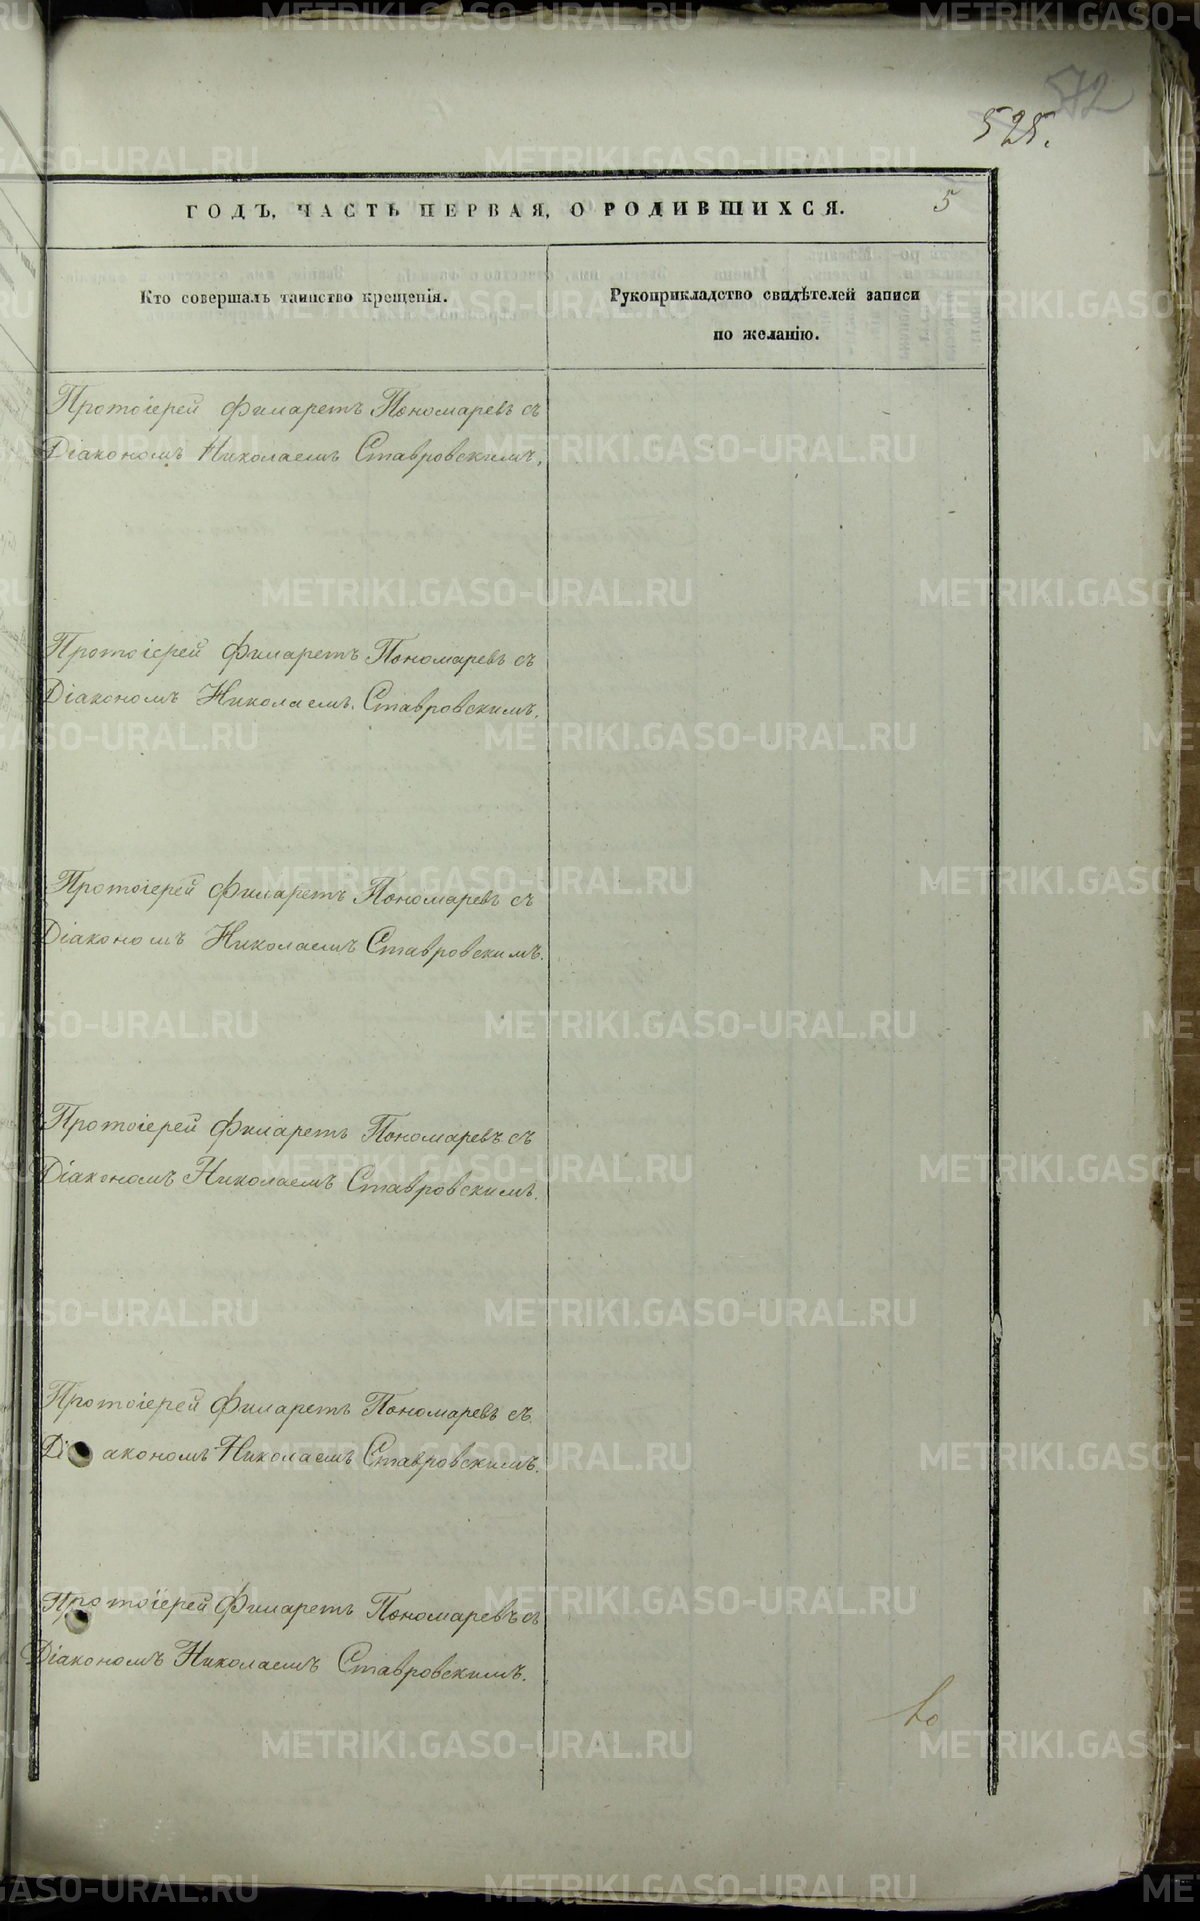 572
525.
ГОДЪ, ЧАСТЬ ПЕРВАЯ, О РОДИВШИХСЯ. 5
Кто совершалъ таинство крещенія.
Рукоприкладство свидѣтелей записи
по желанію.
Протоіерей Филаретъ Пономаревъ съ
Діакономъ Николаемъ Ставровскимъ.
Протоіерей Филаретъ Пономаревъ съ
Діакономъ Николаемъ Ставровскимъ.
Протоіерей Филаретъ Пономаревъ съ
Діакономъ Николаемъ Ставровскимъ.
Протоіерей Филаретъ Пономаревъ съ
Діакономъ Николаемъ Ставровскимъ.
Протоіерей Филаретъ Пономаревъ съ
Діакономъ Николаемъ Ставровскимъ.
Протоіерей Филаретъ Пономаревъ съ
Діакономъ Николаемъ Ставровскимъ.
METRIKI.GASO-URAL.RU